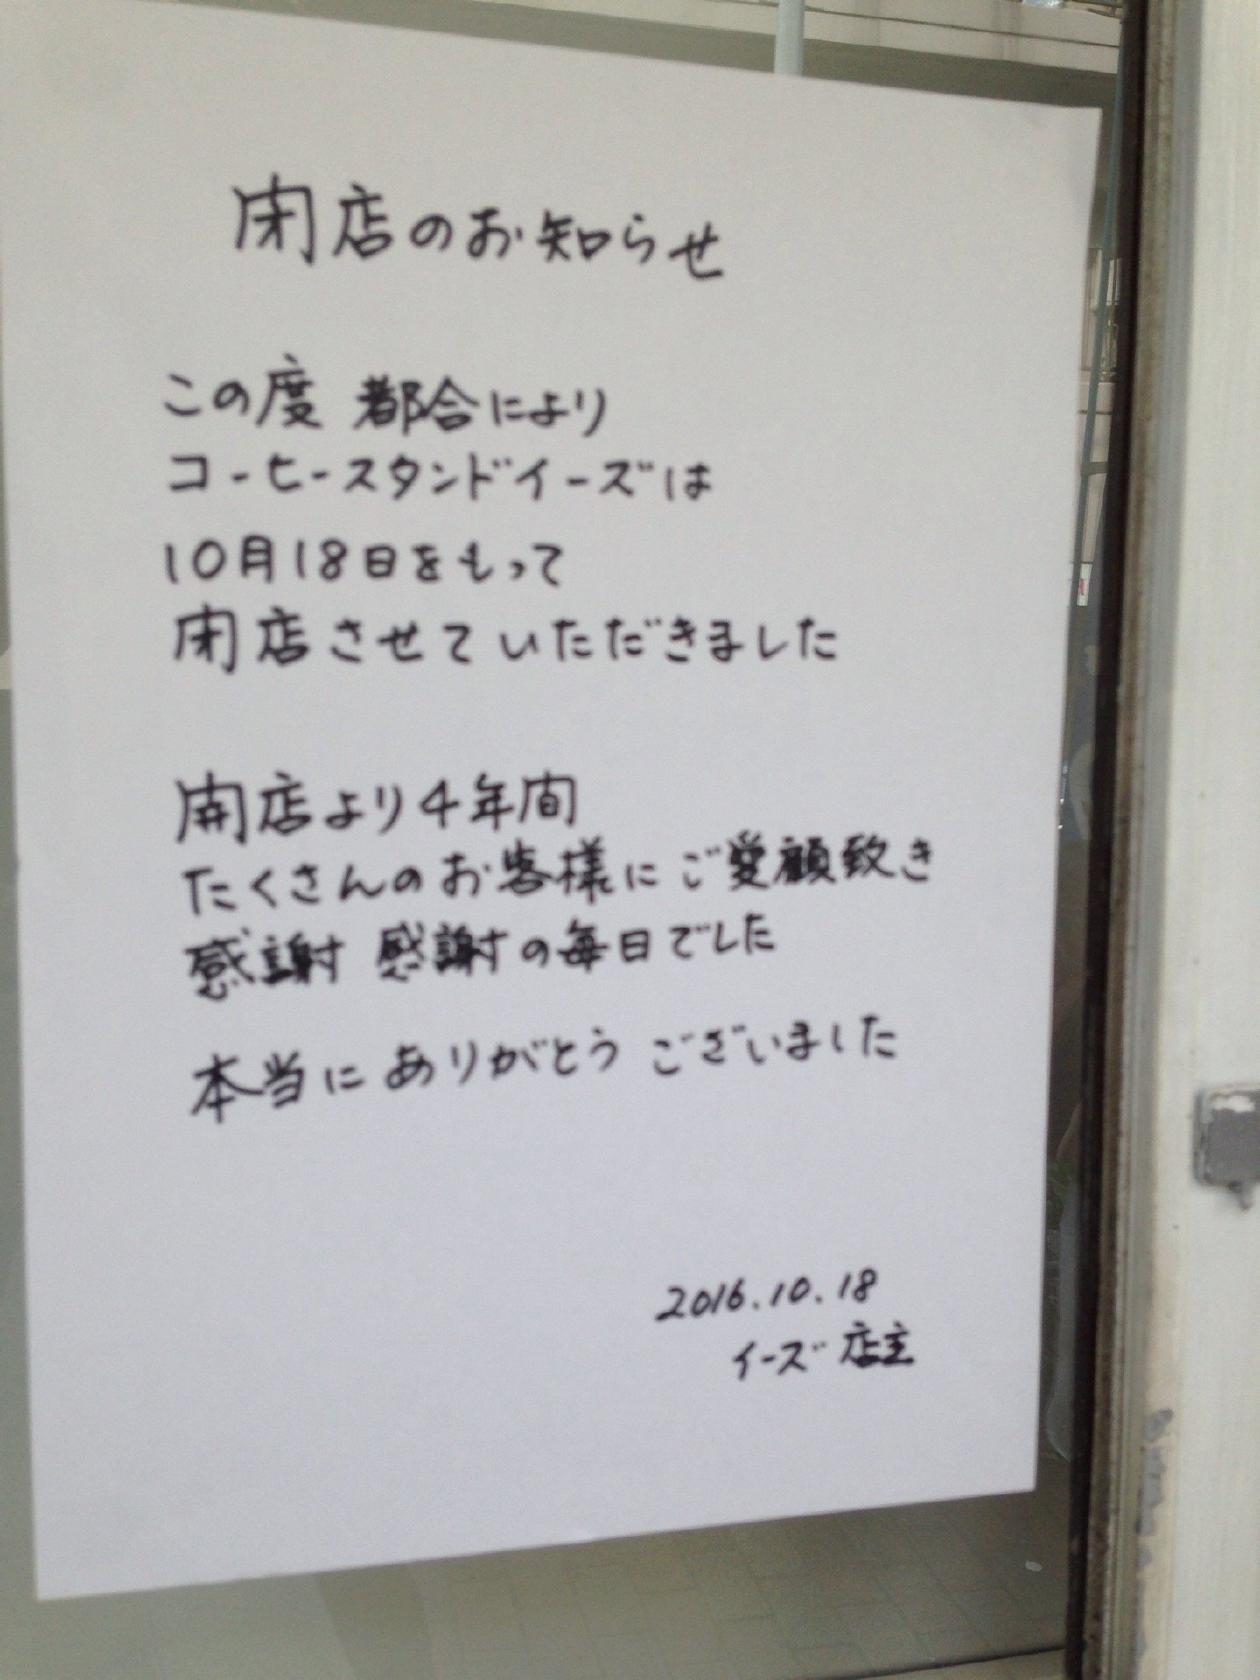 閉店のお知らせ
この度 都合により
コーヒースタンドイーズは
10月18日をもって
閉店させていただきました
開店より4年間
たくさんのお客様にご愛顧致き
感謝 感謝の毎日でした
本当にありがとうございました
2016.10.18
イーズ 店主